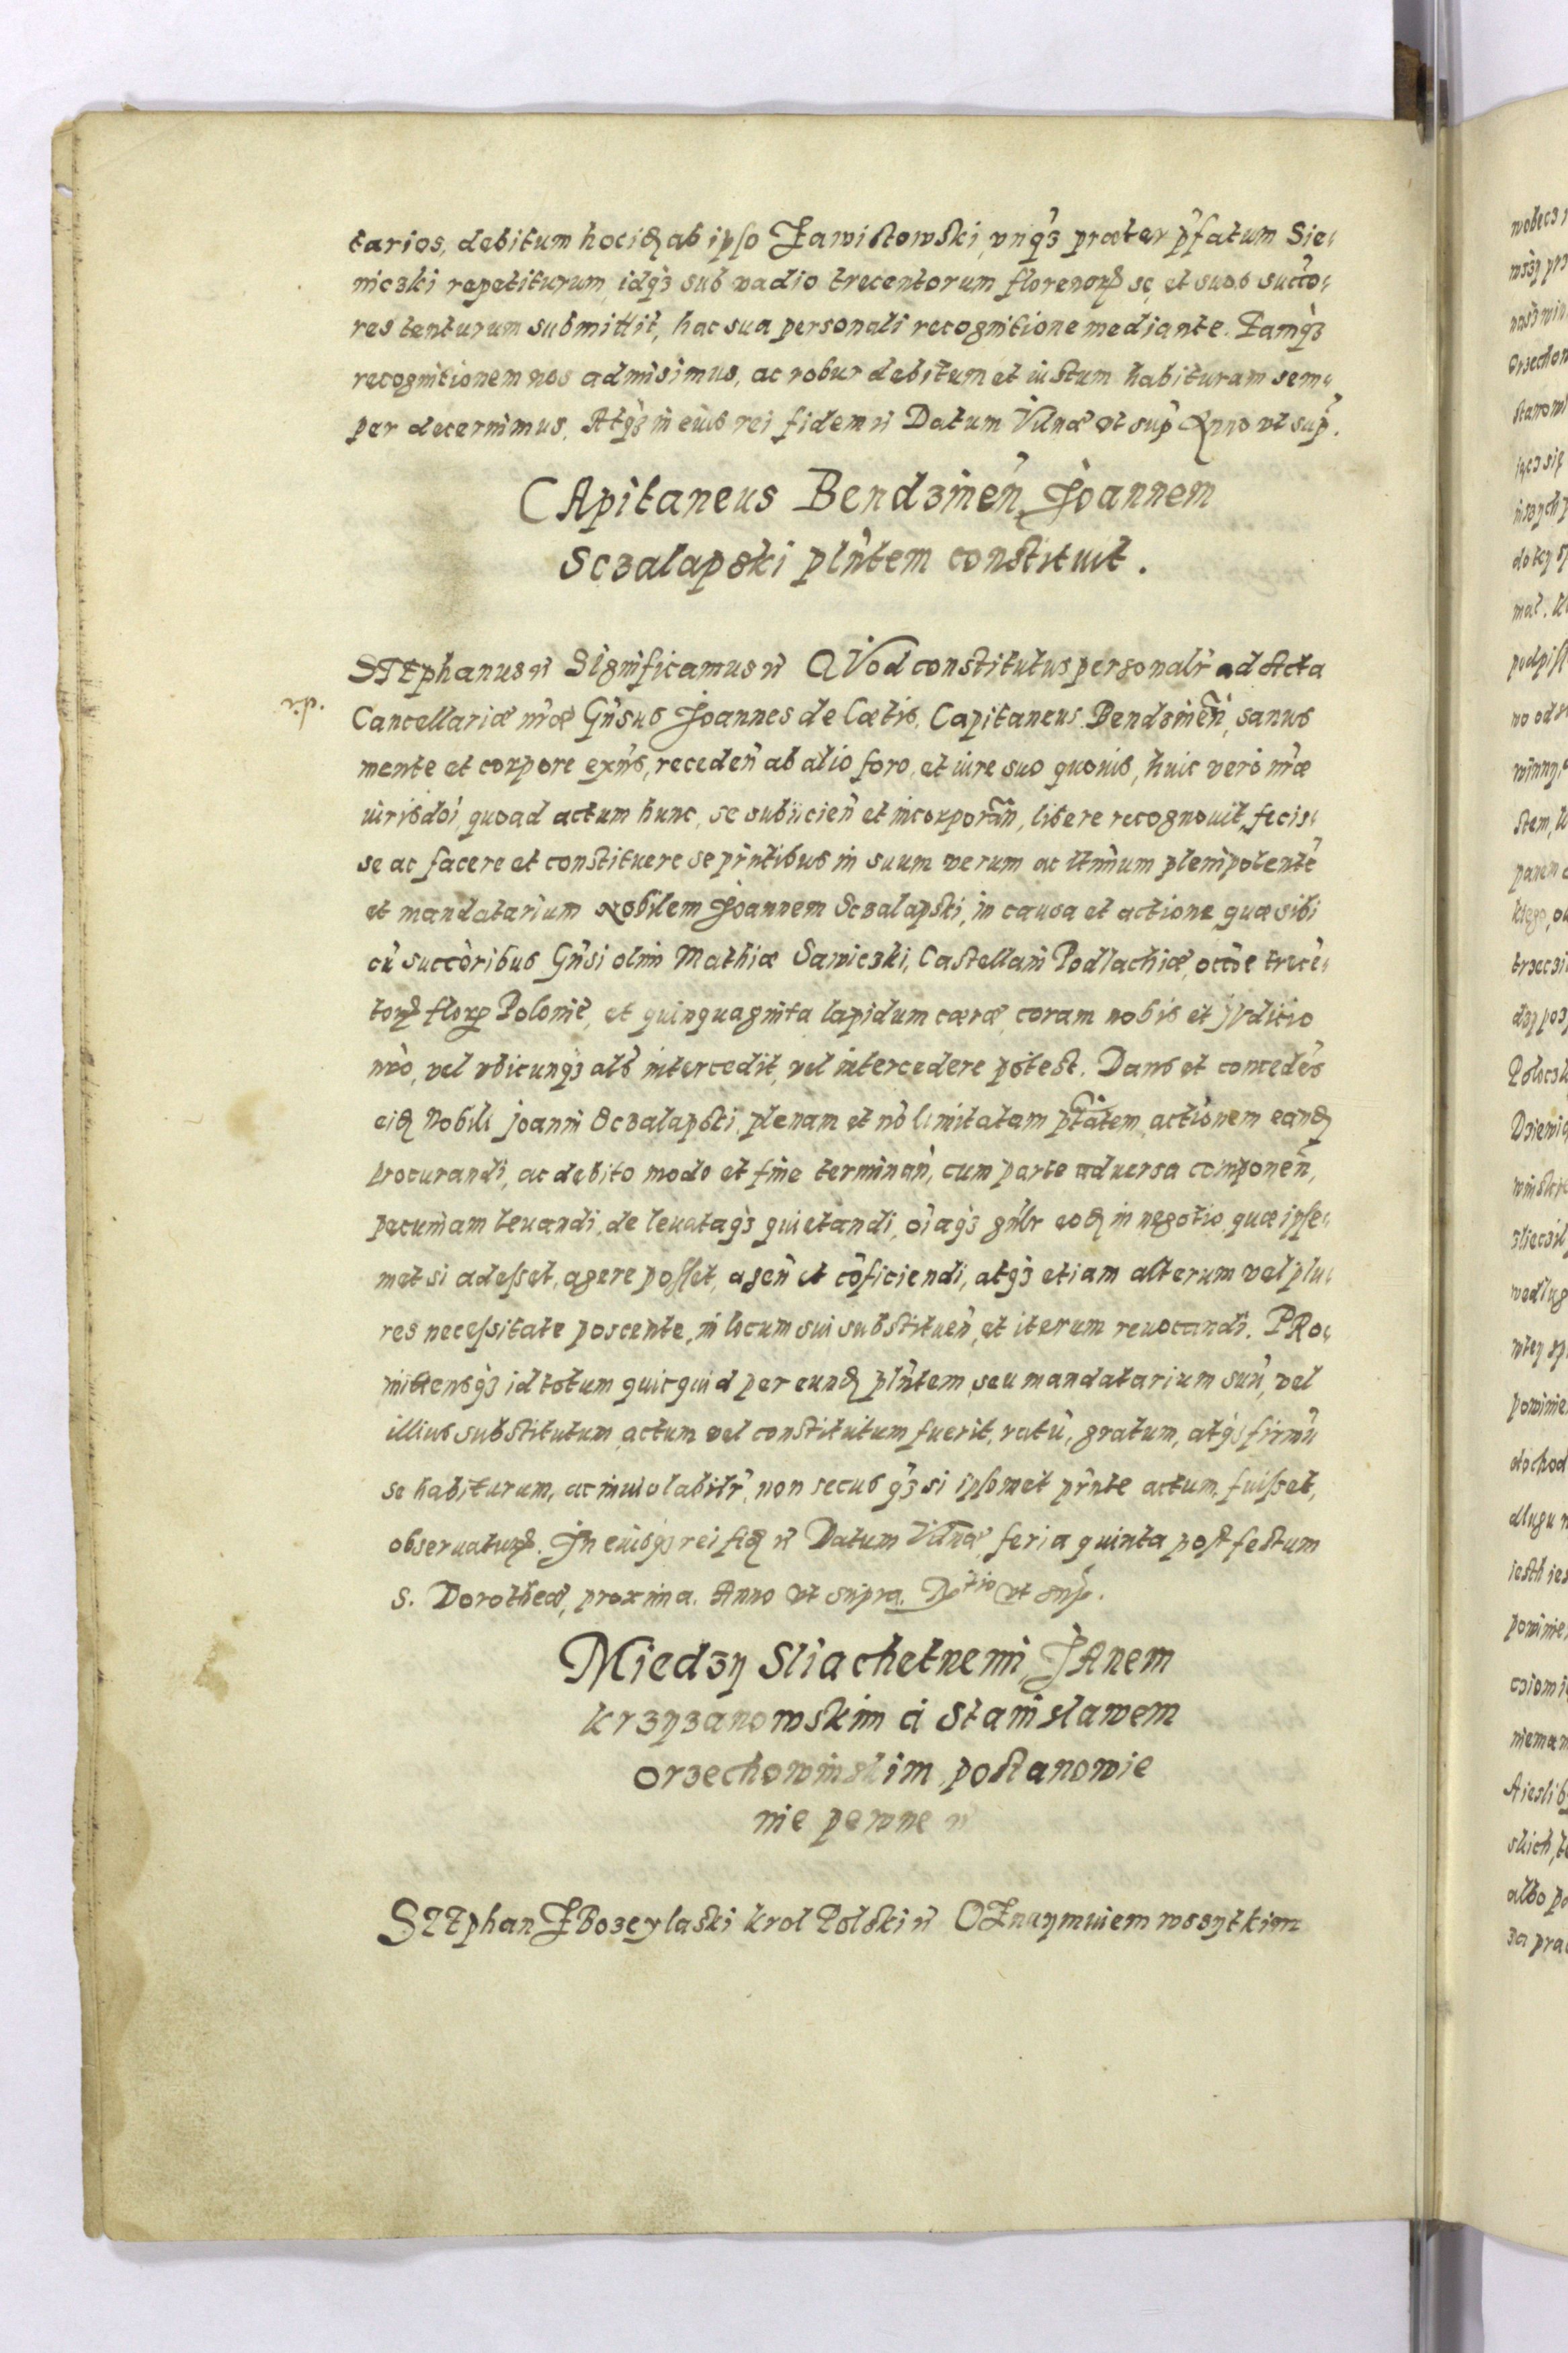 tarios, debitum hociꝗ ab ipso Zawistowski, vnqꝫ præter pfatum Sie⸗
niczki repetiturum, idqꝫ sub vadio trecentorum florenorꝝ se, et suos succo⸗
res tenturum submittit, hac sua personali recognitione mediante. Eamqꝫ
recognitionem nos admisimus, ac robur debitum et iustum habituram sem⸗
per decernimus. Atqꝫ in euis rei fidem ꝛc Datum Vilnæ vt sup Anno vt sup.
CApitaneus Bendzinen̄ Joannem
Sczalapski pln̄tem constituit.
STEphanus ꝛc Significamus ꝛc QVod constitutus personalr̄ ad Acta
Cancellariæ nr̄æ Gn̄sus Joannes de Cœtis, Capitaneus Bendzinen̄, sanus
mente et corpore exn̄s, receden̄ ab alio foro, et iure suo quouis, huic vero nr̄æ
iurisdoi, quoad actum hunc, se subiicien̄ et incorporan̄, libere recognouit, fecis⸗
se ac facere et constituere se prn̄tibus in suum verum ac ltn̄mum plenipotentē
et mandatarium Nobilem Joannem Sczalapski, in causa et actione quæ sibi
cū succoribus Gn̄si olim Mathiæ Sawiczki, Castellani Podlachiæ, occoe trecē⸗
torꝝ florꝝ Polonic̄, et quinquaginta lapidum cæræ, coram nobis et Juditio
nr̄o, vel vbicunqꝫ als̄ intercedit, vel intercedere potest. Dans et concedēs
eiꝗ Nobili Joanni Sczalapski, plenam et nō limitatam ptatem, actionem eanꝗ
procurandi, ac debito modo et fine terminan̄, cum parte aduersa componen̄,
pecuniam leuandi, de leuataqꝫ quietandi, oīaqꝫ gn̄lr eoꝗ in negotio, quæ ipse⸗
met si adesset, agere posset, agen̄ et cōficiendi, atqꝫ etiam alterum vel plu⸗
res necessitate poscente, in locum sui substituen̄, et iterum reuocandi. PRo⸗
mittensqꝫ id totum quicquid per eunꝗ pln̄tem, seu mandatarium suū, vel
illius substitutum, actum vel constitutum fuerit, ratū, gratum, atqꝫ firmū
se habiturum, ac inuiolabilr̄, non secus qꝫ si ipsomet prn̄te actum fuisset,
obseruaturꝝ. In euisqꝫ rei fiꝗ ꝛc Datum Vilnæ, feria quinta post festum
S. Dorotheæ, proxima. Anno vt supra. Rtio vt sup.
Miedzy Sliachetnemi JAnem
krzyzanowskim a Stanislawem
orzechowinskim postanowie
nie pewne ꝛc
STEphan Z Bozey laski krol Polski ꝛc OZnaymuiem wszytkim